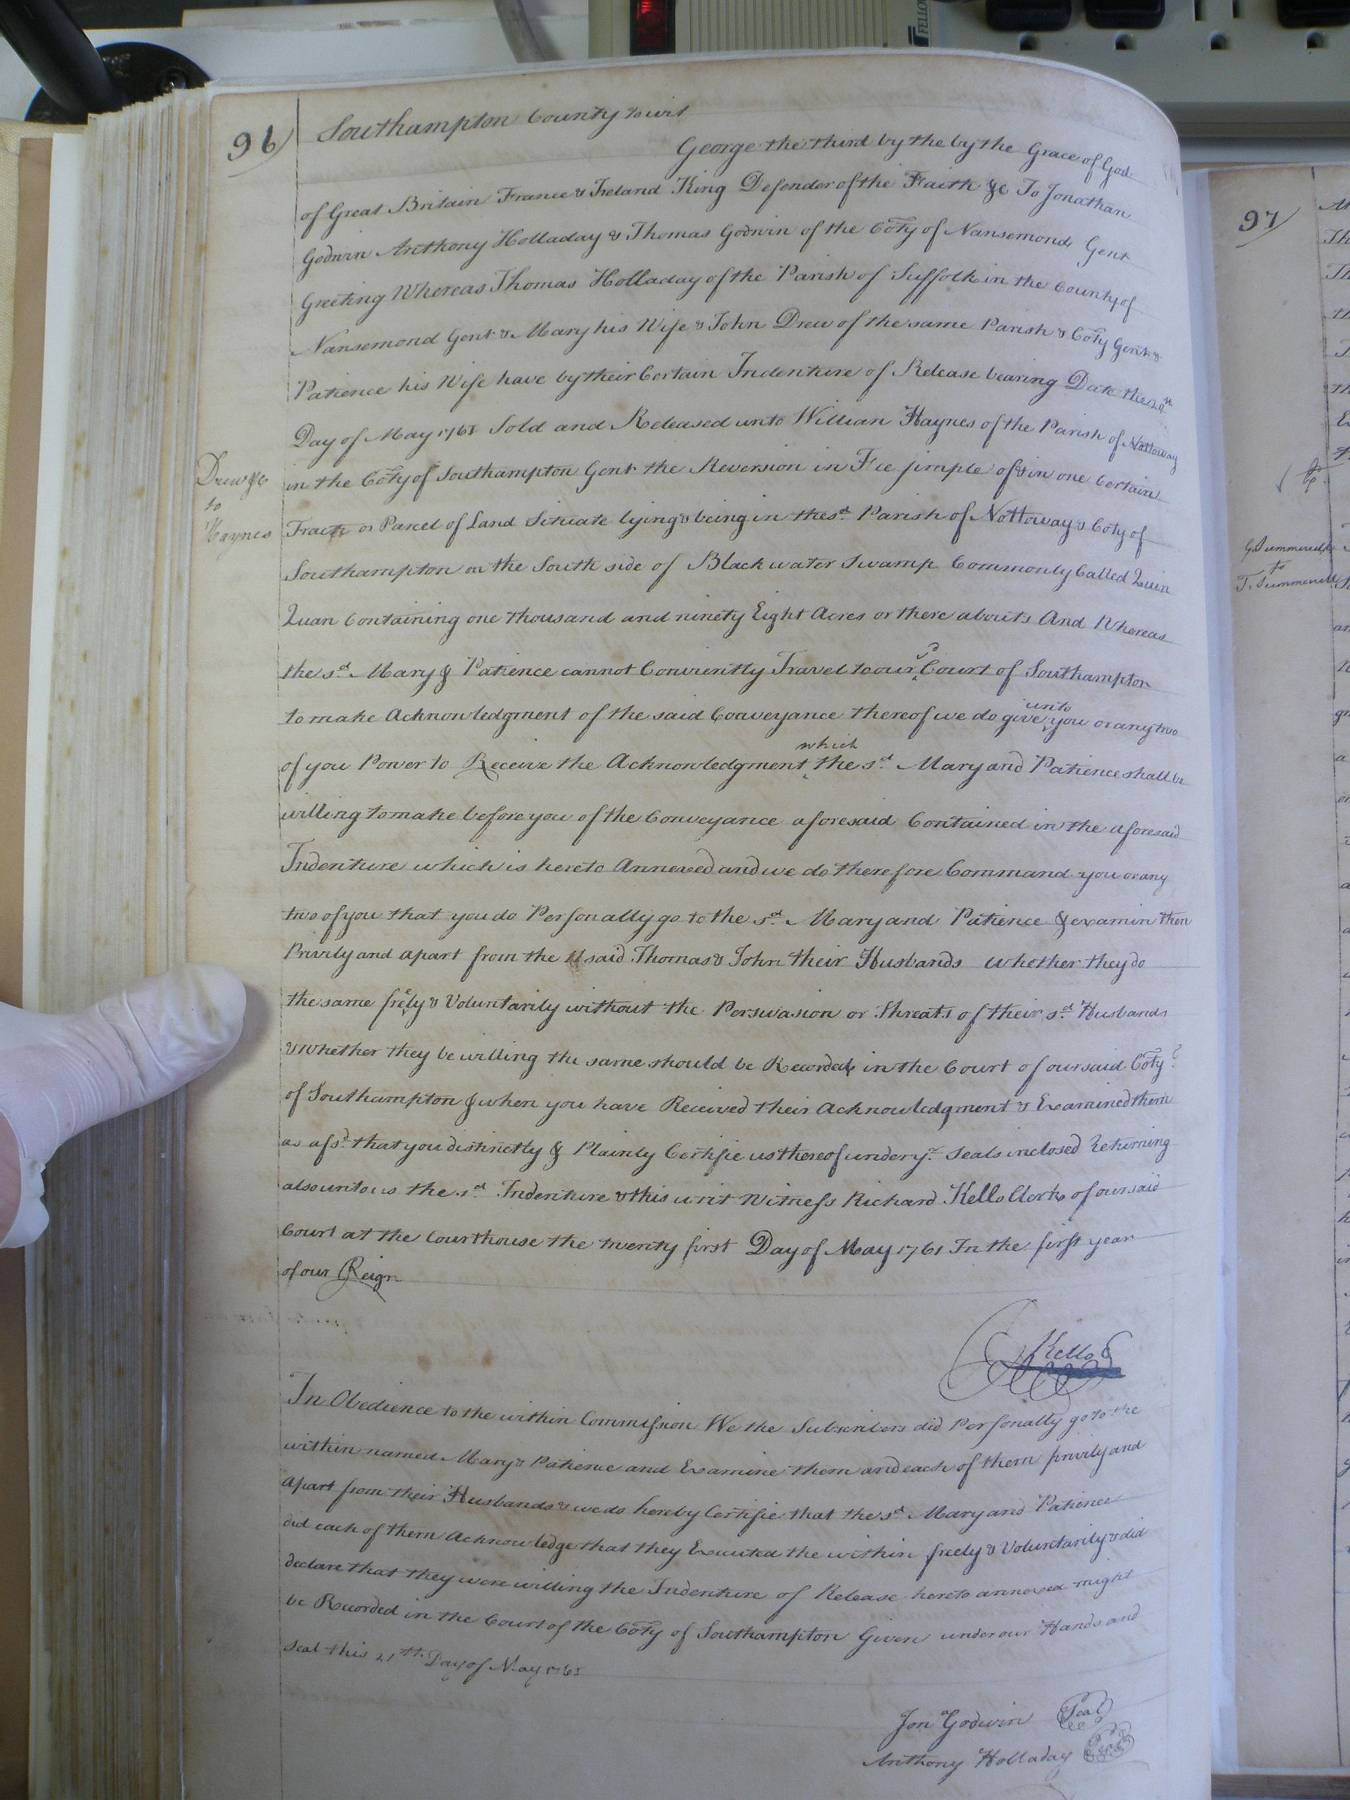 96
Southampton County to wit
George the third by the by the Grace of God
of Great Britain France & Ireland King Defender of the Faith &c To Jonathan
Godwin Anthony Holladay & Thomas Godwin of the Coty of Nansemond Gent
Greeting Whereas Thomas Holladay of the Parish of Suffolk in the County of
Nansemond Gent & Mary his Wife & John Drew of the same Parish & Coty Gent &
Patience his Wife have by their Certain Indenture of Release bearing Date the
Day of May 1761 Sold and Released unto William Haynes of the Parish of Nottoway
in the Coty of Southampton Gent the Reversion in Fee simple of & in one Certain
Tract or Parcel of Land Situate lying & being in the sd Parish of Nottoway & Coty of
Southampton on the South side of Blackwater Swamp Commonly Called Quin
Quan Containing one thousand and ninety Eight Acres or there abouts And Whereas
the sd Mary & Patience cannot Conviently Travel to our sd Court of Southampton
to make Acknowledgment of the said Conveyance thereof we do give unto you or any two
of you Power to Receive the Acknowledgment which the sd Mary and Patience shall be
willing to make before you of the Conveyance aforesaid Contained in the aforesaid
Indenture which is hereto Annexed and we do therefore Command you or any
two of you that you do Personally go to the sd Mary and Patience & examin them
Privily and apart from the said Thomas & John their Husbands whether they do
the same freely & Voluntarily without the Perswasion or Threats of their sd Husbands
& whether they be willing the same should be Recorded in the Court of our said Coty
of Southampton & when you have Received their Acknowledgment & Examined them
as afsd that you distinctly & Plainly Certifie us thereof under yr Seals inclosed Returning
also unto us the sd Indenture & this writ Witness Richard Kello Clerk of our said
Court at the Courthouse the twenty first Day of May 1761 In the first year
of our Reign
Kello C
In Obedience to the within Commission We the Subscribers did Personally go to the
within named Mary & Patience and Examine them and each of them privily and
Apart from their Husbands & we do hereby Certifie that the sd Mary and Patience
did each of them Acknowledge that they Executed the within freely & Voluntarily & did
declare that they were willing the Indenture of Release hereto annexed might
be Recorded in the Court of the Coty of Southampton Given under our Hands and
Seal this 21th Day of May 1761
Jona Godwin Seal
Anthony Holladay Seal
Drew &c
to
Haynes
97
G. Summerell
to
T. Summerell